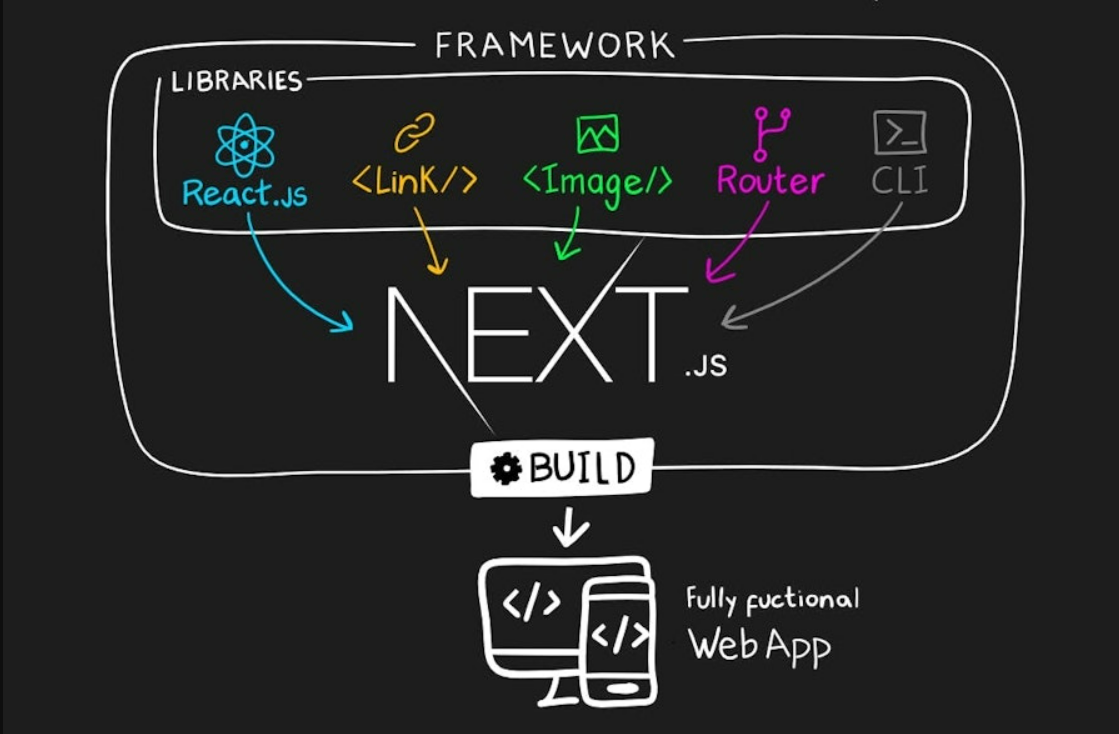 FRAMEWORK
LIBRARIES
React.JS
<LinK/>
<Image/>
Router
>_
CLI
NEXT.JS
BUILD
</>
</>
Fully fuctional
Web App